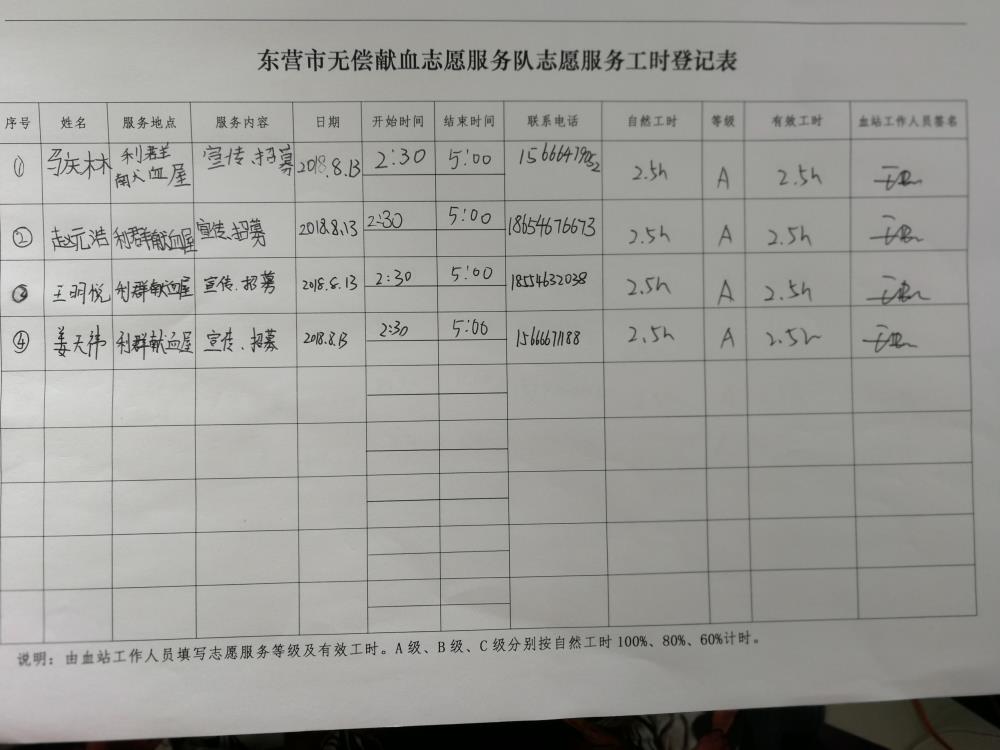 东营市无偿献血志愿服务队志愿服务工时登记表
序号 姓名 服务地点 服务内容 日期 开始时间 结束时间 联系电话 自然工时 等级 有效工时 血站工作人员签名
① 利群献血屋 宣传、招募 2018.8.13 2:30 5:00 2.5h A 2.5h
② 赵元浩 利群献血屋 宣传、招募 2018.8.13 2:30 5:00 18654676673 2.5h A 2.5h
③ 王明悦 利群献血屋 宣传、招募 2018.8.13 2:30 5:00 18554632038 2.5h A 2.5h
④ 姜天祎 利群献血屋 宣传、招募 2018.8.13 2:30 5:00 15666671188 2.5h A 2.5h
说明：由血站工作人员填写志愿服务等级及有效工时。A级、B级、C级分别按自然工时100%、80%、60%计时。